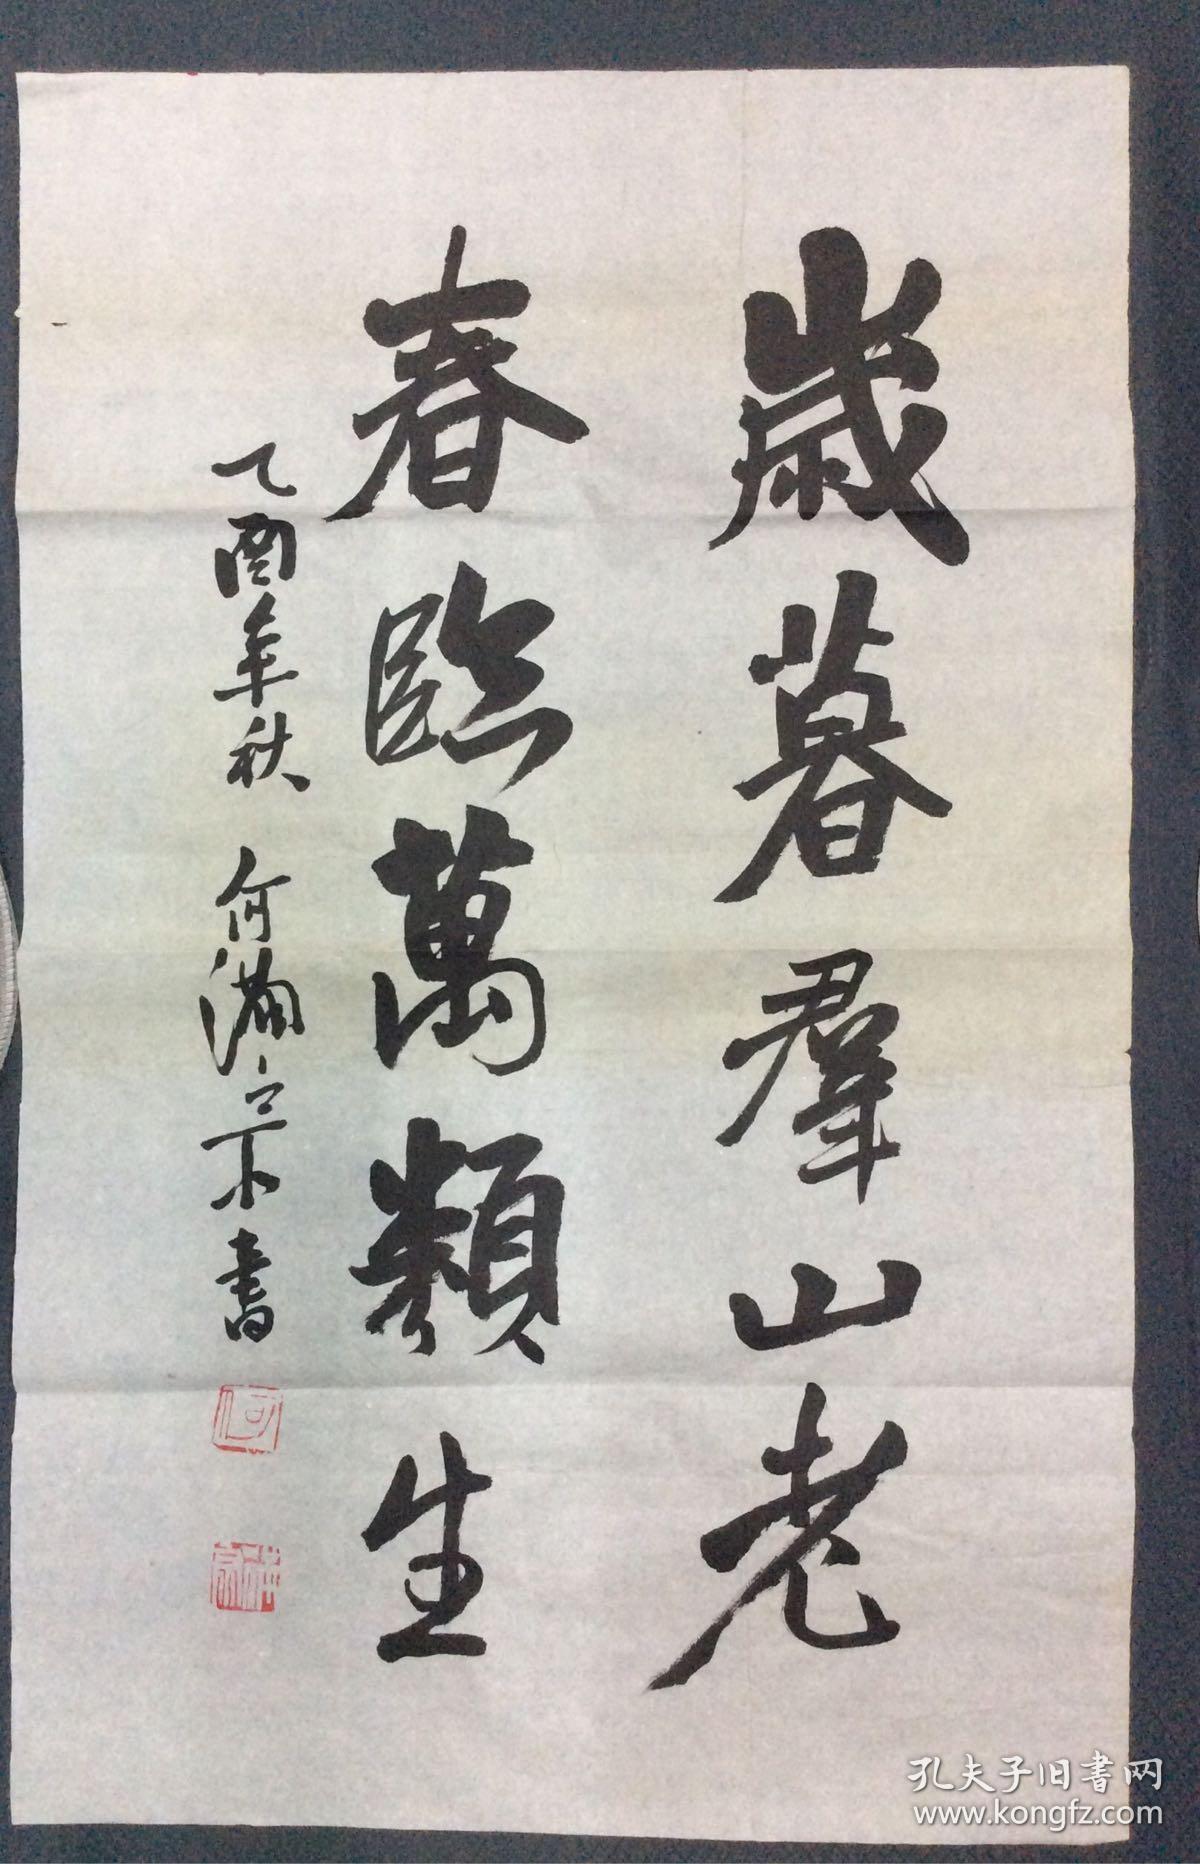 歲暮羣山老
春臨萬類生
乙酉年秋 何滿宗書
孔夫子旧書网
www.kongfz.com